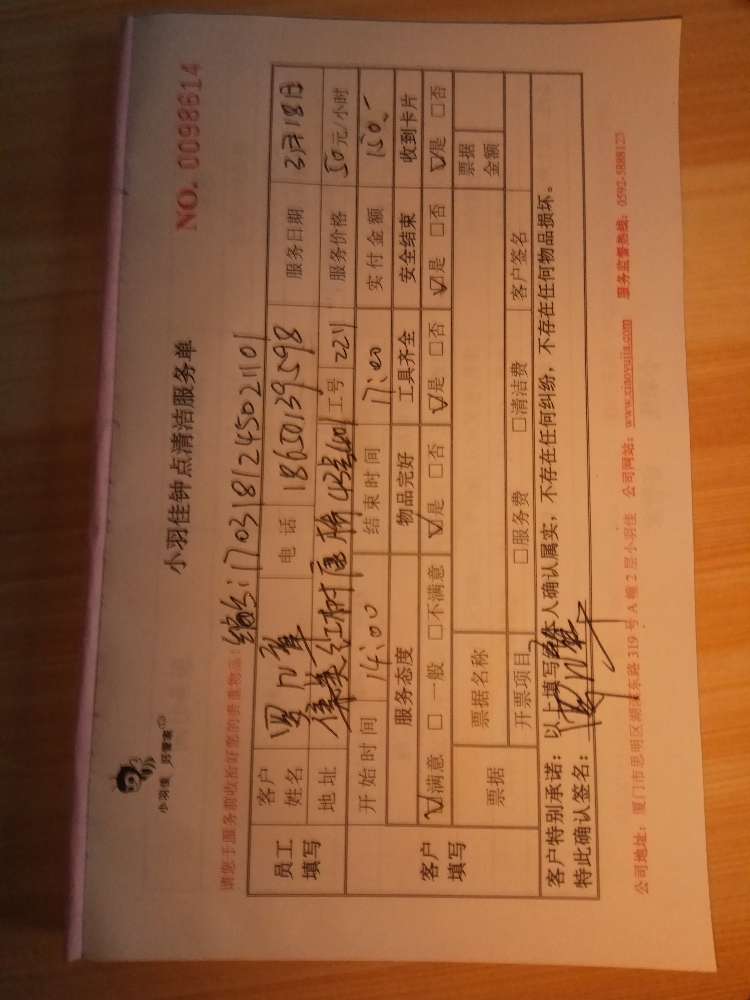 小羽佳 郑雪瑜
小羽佳钟点清洁服务单
NO. 0098614
请您于服务前收拾好您的贵重物品!
编号:1703181245021101
员工填写
客户姓名 电话 18650139598 服务日期 3月18日
地址 红树康桥43号401 工号 2211 服务价格 50元/小时
客户填写
开始时间 14:00 结束时间 17:00 实付金额 150.-
服务态度 物品完好 工具齐全 安全结束 收到卡片
☑满意 □一般 □不满意 ☑是 □否 ☑是 □否 ☑是 □否 ☑是 □否
票据 票据名称 票据金额
开票项目 □服务费 □清洁费 客户签名
客户特别承诺:以上填写经本人确认属实,不存在任何纠纷,不存在任何物品损坏。
特此确认签名:
公司地址:厦门市思明区湖滨东路319号A幢2层小羽佳 公司网站:www.xiaoyujia.com 服务监督热线:0592-5888123